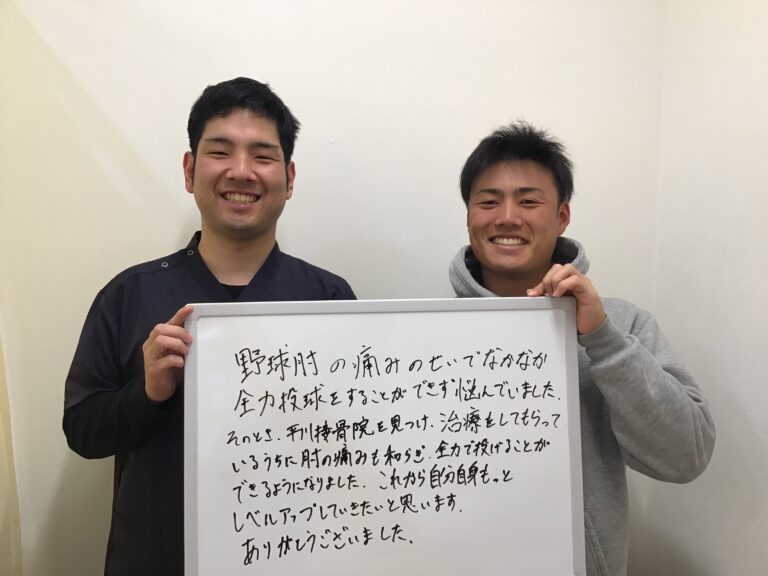 野球肘の痛みのせいでなかなか
全力投球をすることができず悩んでいました。
そのとき、平川接骨院を見つけ、治療をしてもらって
いるうちに肘の痛みも和らぎ、全力で投げることが
できるようになりました。これから自分自身もっと
レベルアップしていきたいと思います。
ありがとうございました。